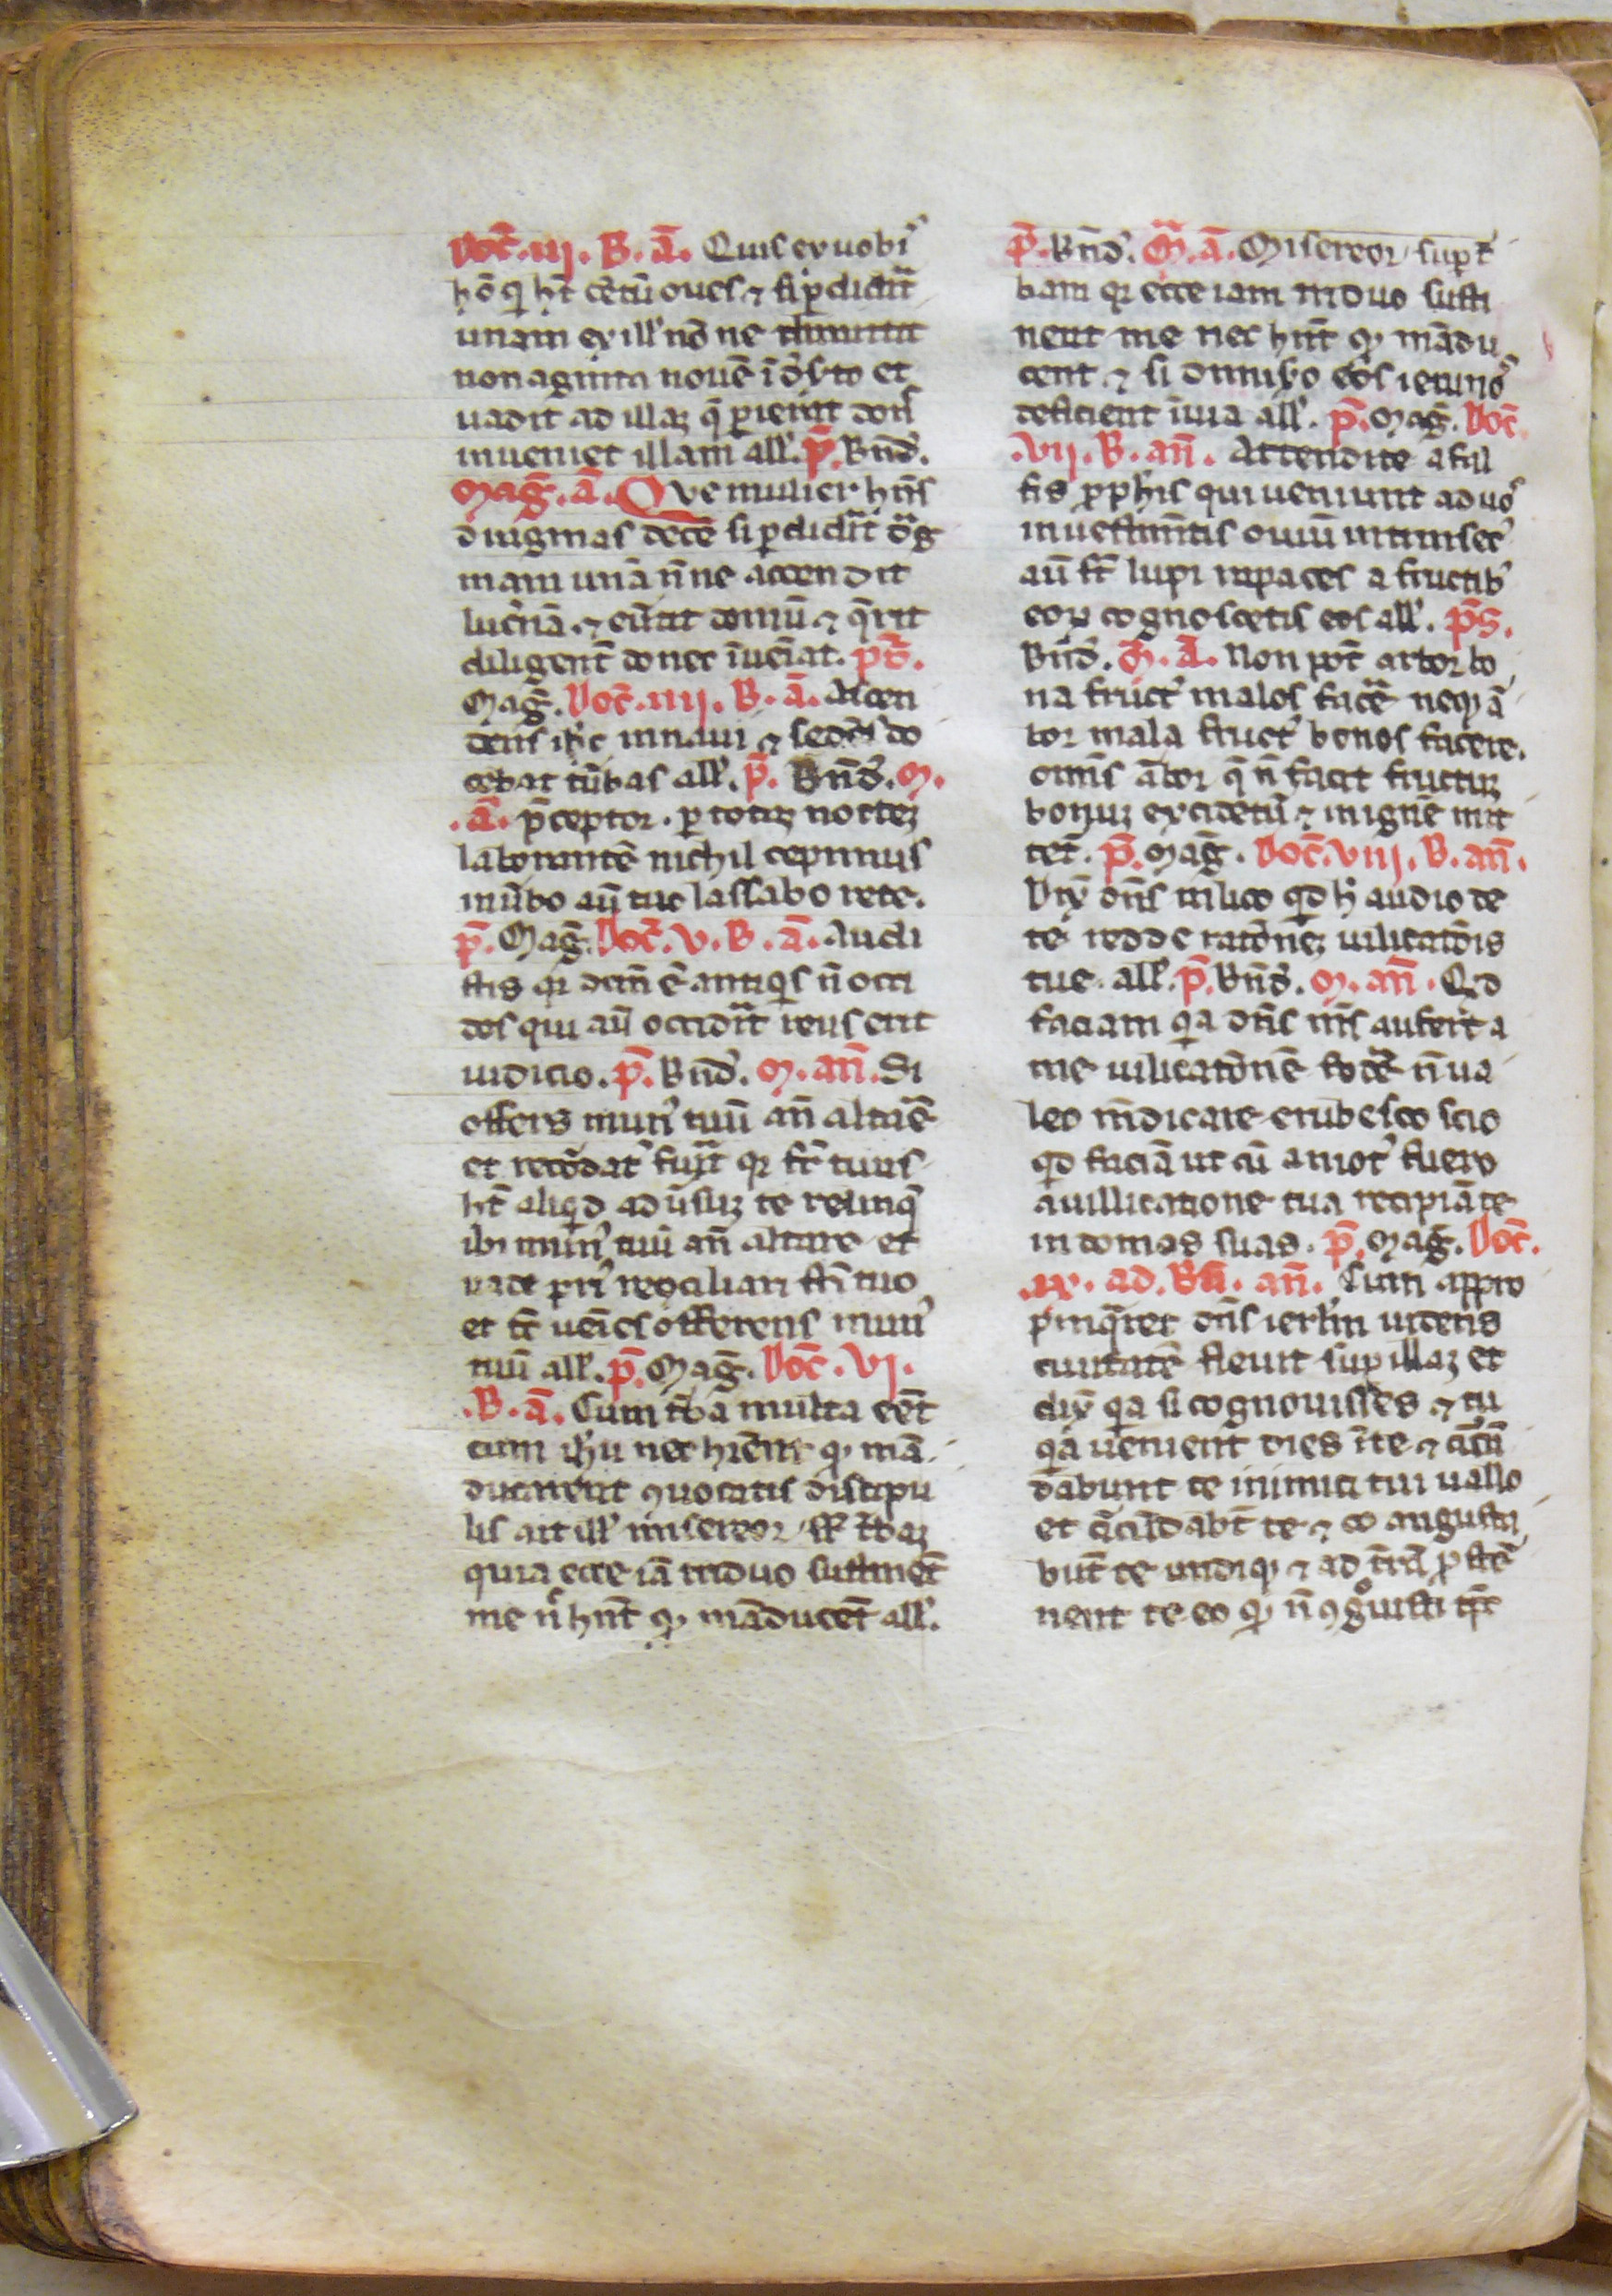 Doc̄. iij. B. ā. Quis ex uobi᾽
hō q̇ ht̄ cētū oues ⁊ si ꝑdidit̄
unam ex ill᾽ nōne dimittit
nonaginta nouē ī d᾽s᾽to et
uadit ad illaꝫ q̄ ꝑierat don᾽
inueniet illam all᾽. p̄. Bn̄d᾽.
Maḡ. ā. Que mulier hn̄s
dragmas decē si ꝑdidit̄ dᷓg
mam unā n̄ne accendit
luc᾽nā ⁊ eu᾽tit domū ⁊ q̄rit
diligent̄ donec īueīat. p̄s᾽.
Maḡ. Doc̄. iiij. B. ā. Ascen
dens ih᾽c in naui ⁊ sedēs do
cebat tūbas all᾽. p̄. Bn̄d᾽. M.
.ā. p̄ceptor. ꝑ totaꝫ nocteꝫ
laborantē nichil cepimus
in ūbo aū tuo laſſabo rete.
p̄. Maḡ. Doc̄. v. B. ā. Audi
stis qꝛ dcm̄ ē antiq̇s n̄ occi
des qui aū occidit̄ reus erit
iudicio. p̄. Bn̄d᾽. M. an̄. Si
offers mun᾽ tuū an̄ altaē
et recordat᾽ fu᾽it qꝛ fr̄ tuus
ht̄ aliq̇d adūsuꝫ te relinq̄
ibi mun᾽ tuū an̄ altare et
uade p᾽ri᾽ reꝯciliari fr̄i tuo
et tc̄ ueīes offerens mun᾽
tuū all᾽. p̄. Maḡ. Doc̄. vi.
.B. ā. Cum tb̄a multa eēt
cum ih᾽u nec hrēnt qꝫ mā
ducarent ꝯuocatis discipu
lis ait ill᾽ misereor sr̄ tb̄aꝫ
quia ecce iā triduo sustinēt
me n̄ hn̄t qꝫ māducēt all᾽.
p̄. Bn̄d᾽. M̄. ā. Misereor suꝑ t᾽
bam qꝛ ecce iam triduo susti
nent me nec hn̄t qꝫ mādu
cent ⁊ si dimis᾽o eos ieiuno᾽
deficient ī uia all᾽. p̄. Maḡ. Doc̄
.vij. B. an̄. Attendite a fal
sis ꝓph᾽is qui ueniunt ad uo᾽
in uestimn̄tis ouiū intrinsec᾽
aū st̄ lupi rapaces a fructib᾽
eoꝝ cognoscetis eos all᾽. p̄s.
Bn̄d᾽. M̄. ā. Non pot̄ arbor bo
na fruct᾽ malos facē neqꝫ ā
bor mala fruct᾽ bonos facere.
omīs ābor q̄ n̄ facit fructuꝫ
bonuꝫ excidetū ⁊ in ignē mit
tet̄. p̄. Maḡ. Doc̄. viij. B. an̄.
Dix̄ dn̄s uilico qd h᾽ audio de
te redde ratōneꝫ uilicatōis
tue all᾽. p̄. Bn̄d᾽. M. an̄. Qd
faciam qa dn̄s m̄s aufert a
me uilicatōnē fodē n̄ ua
leo m̄dicare erubesco scio
qd faciā ut cū amot᾽ fuero
a uillicatione tua recipiāte
in domos suas. p̄. Maḡ. Doc̄.
.ix. ad. Bn̄. an̄. Cum appro
pinq̄ret dn̄s ierl᾽m uidens
ciuitatē fleuit suꝑ illaꝫ et
dix̄ qa si cognouiſſes ⁊ tu
qa uenient dies ī te ⁊ circū
dabunt te inimici tui uallo
et circūdabt̄ te ⁊ co angusta
bunt te undiqꝫ ⁊ ad tr̄ā ꝓste᾽
nent te eo qꝫ n̄ ꝯgᷤuisti tp̄r